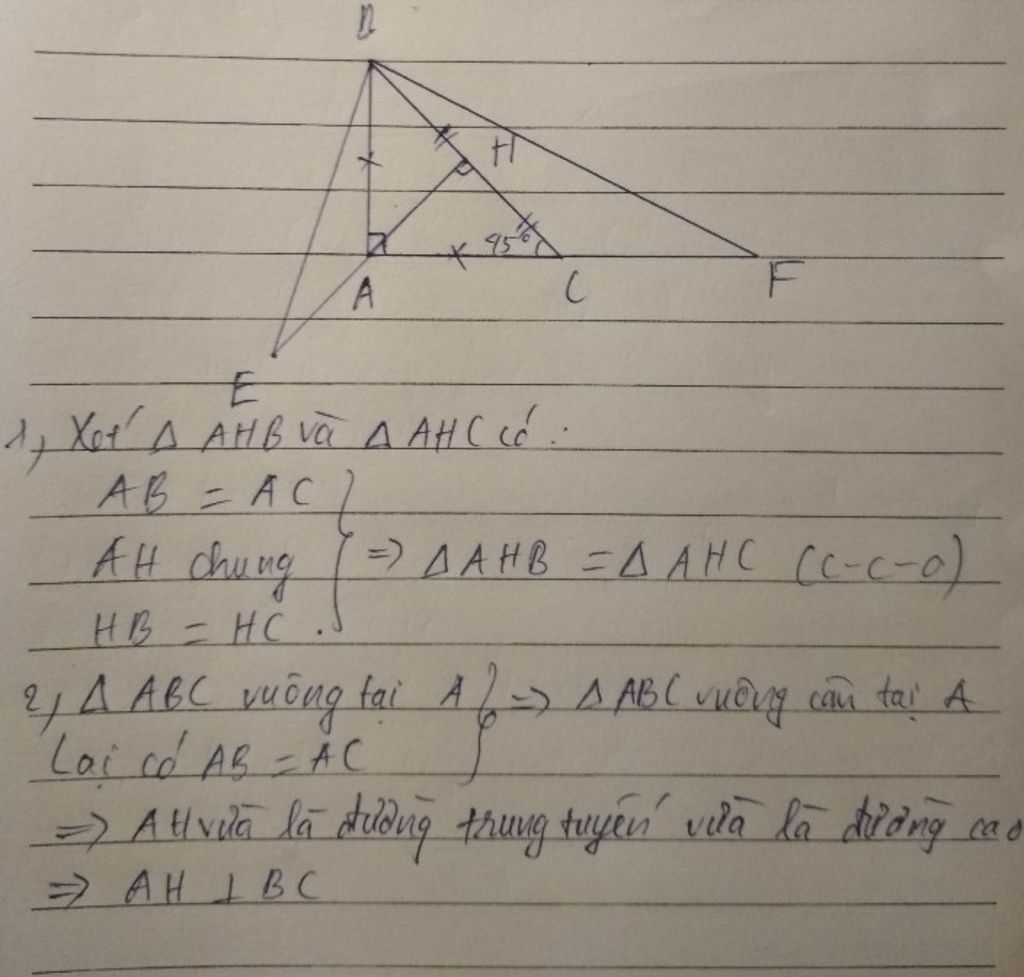 B
H
45°
A
C
F
E
1, Xét Δ AHB và Δ AHC có :
AB = AC
AH chung
HB = HC .
} => Δ AHB = Δ AHC (c-c-c)
2, Δ ABC vuông tại A
Lại có AB = AC
} => Δ ABC vuông cân tại A
=> AH vừa là đường trung tuyến vừa là đường cao
=> AH ⊥ BC